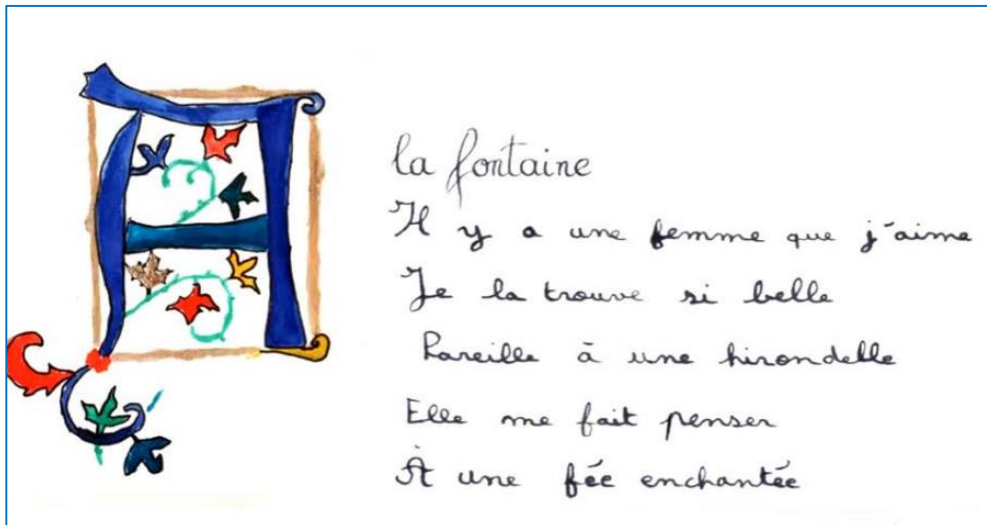 A
la fontaine
Il y a une femme que j'aime
Je la trouve si belle
Pareille à une hirondelle
Elle me fait penser
À une fée enchantée